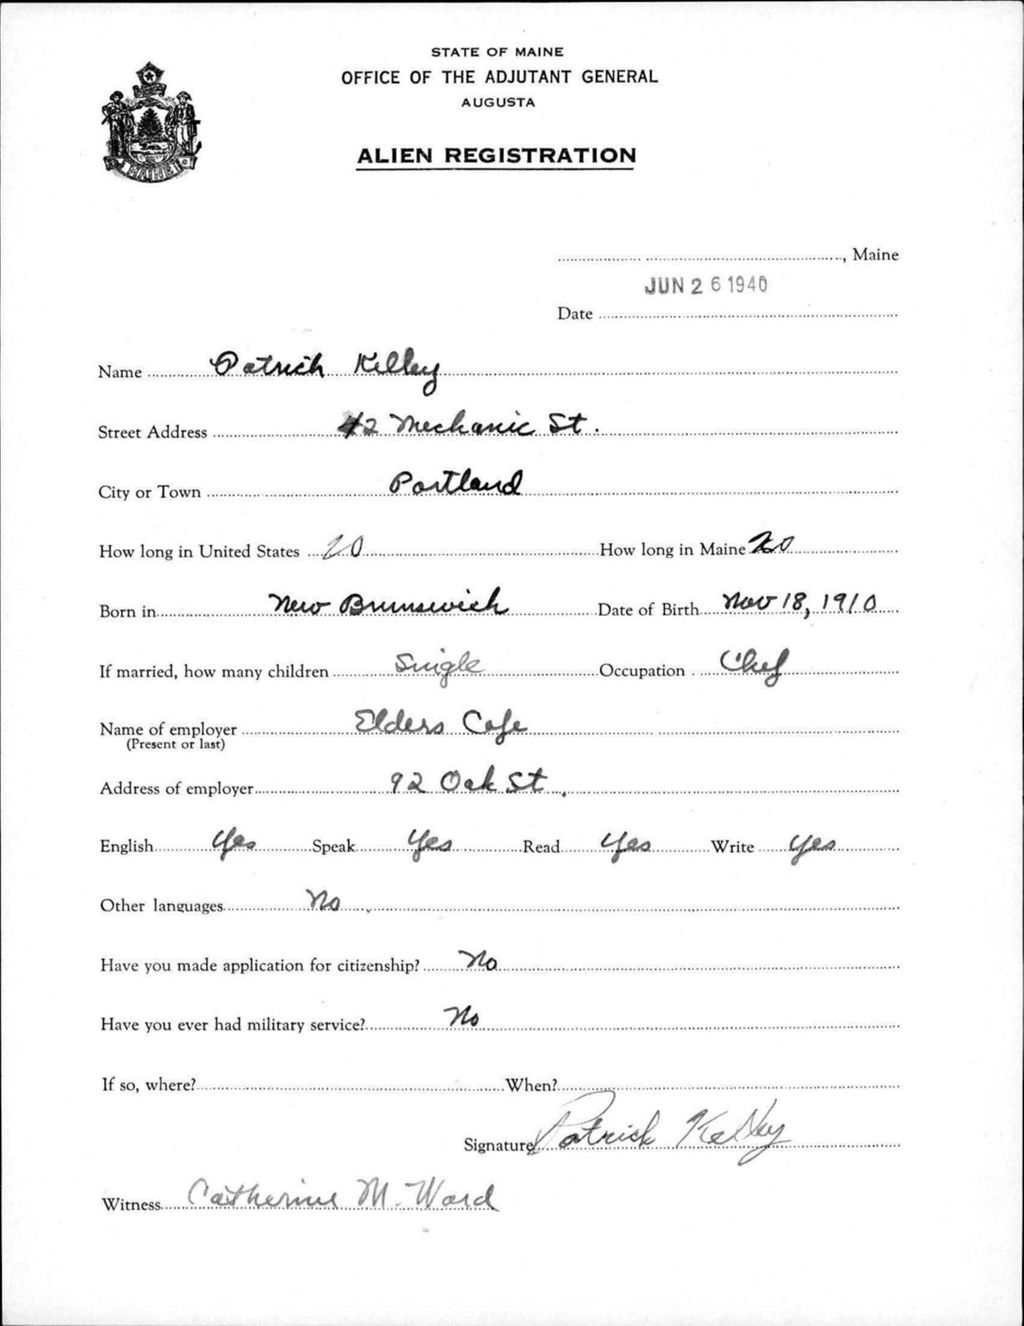 STATE OF MAINE
OFFICE OF THE ADJUTANT GENERAL
AUGUSTA
ALIEN REGISTRATION
MAINE
, Maine
JUN 26 1940
Date
Name Patrick Kelley
Street Address 42 Mechanic St.
City or Town Portland
How long in United States 20 How long in Maine 20
Born in New Brunswick Date of Birth Nov 18, 1910
If married, how many children Single Occupation Chef
Name of employer Elders Cafe
(Present or last)
Address of employer 92 Oak St.
English Yes Speak Yes Read Yes Write Yes
Other languages No.
Have you made application for citizenship? No
Have you ever had military service? No
If so, where? When?
Signature Patrick Kelley
Witness Catherine M. Ward